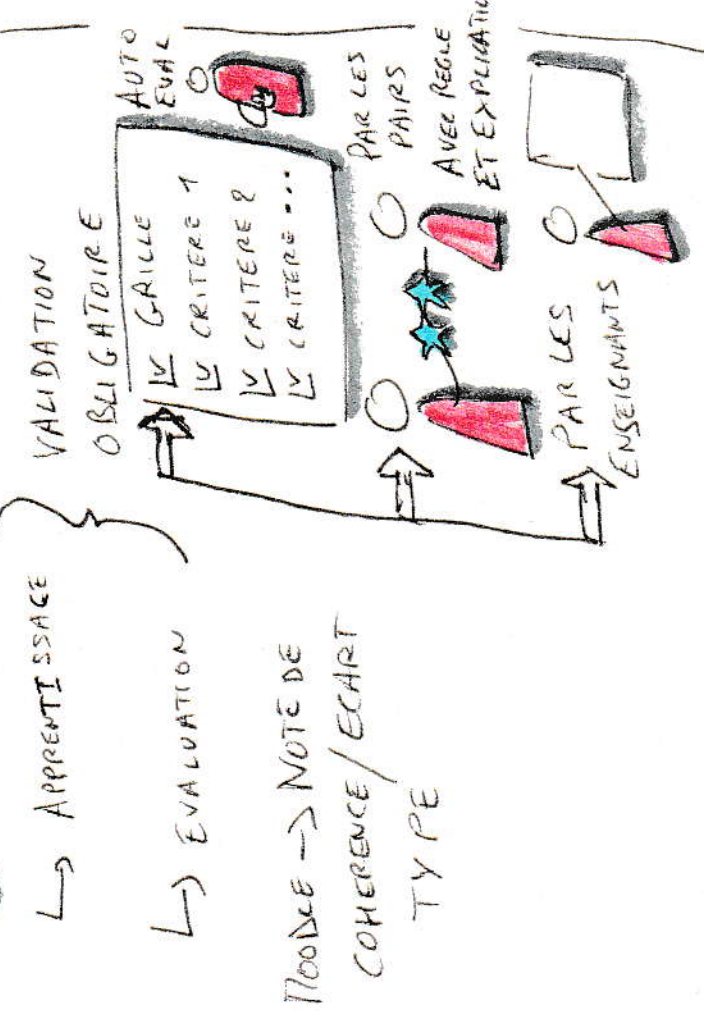 ↳ APPRENTISSAGE
↳ EVALUATION
MOODLE -> NOTE DE
COHERENCE / ECART
TYPE
VALIDATION
OBLIGATOIRE
GRILLE
CRITERE 1
CRITERE 2
CRITERE ...
AUTO
EVAL
PAR LES
PAIRS
AVEC REGLE
ET EXPLICATIO
PAR LES
ENSEIGNANTS